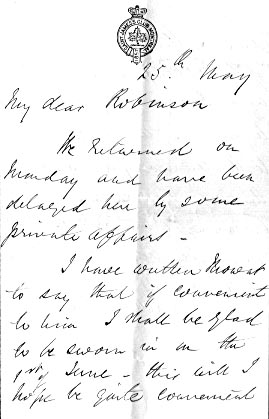 SAINT JAMES'S CLUB MONTREAL
25th May
My dear Robinson
We returned on
Monday and have been
delayed here by some
private affairs -
I have written Mowat
to say that if convenient
to him I shall be glad
to be sworn in on the
1st of June - this will I
hope be quite convenient